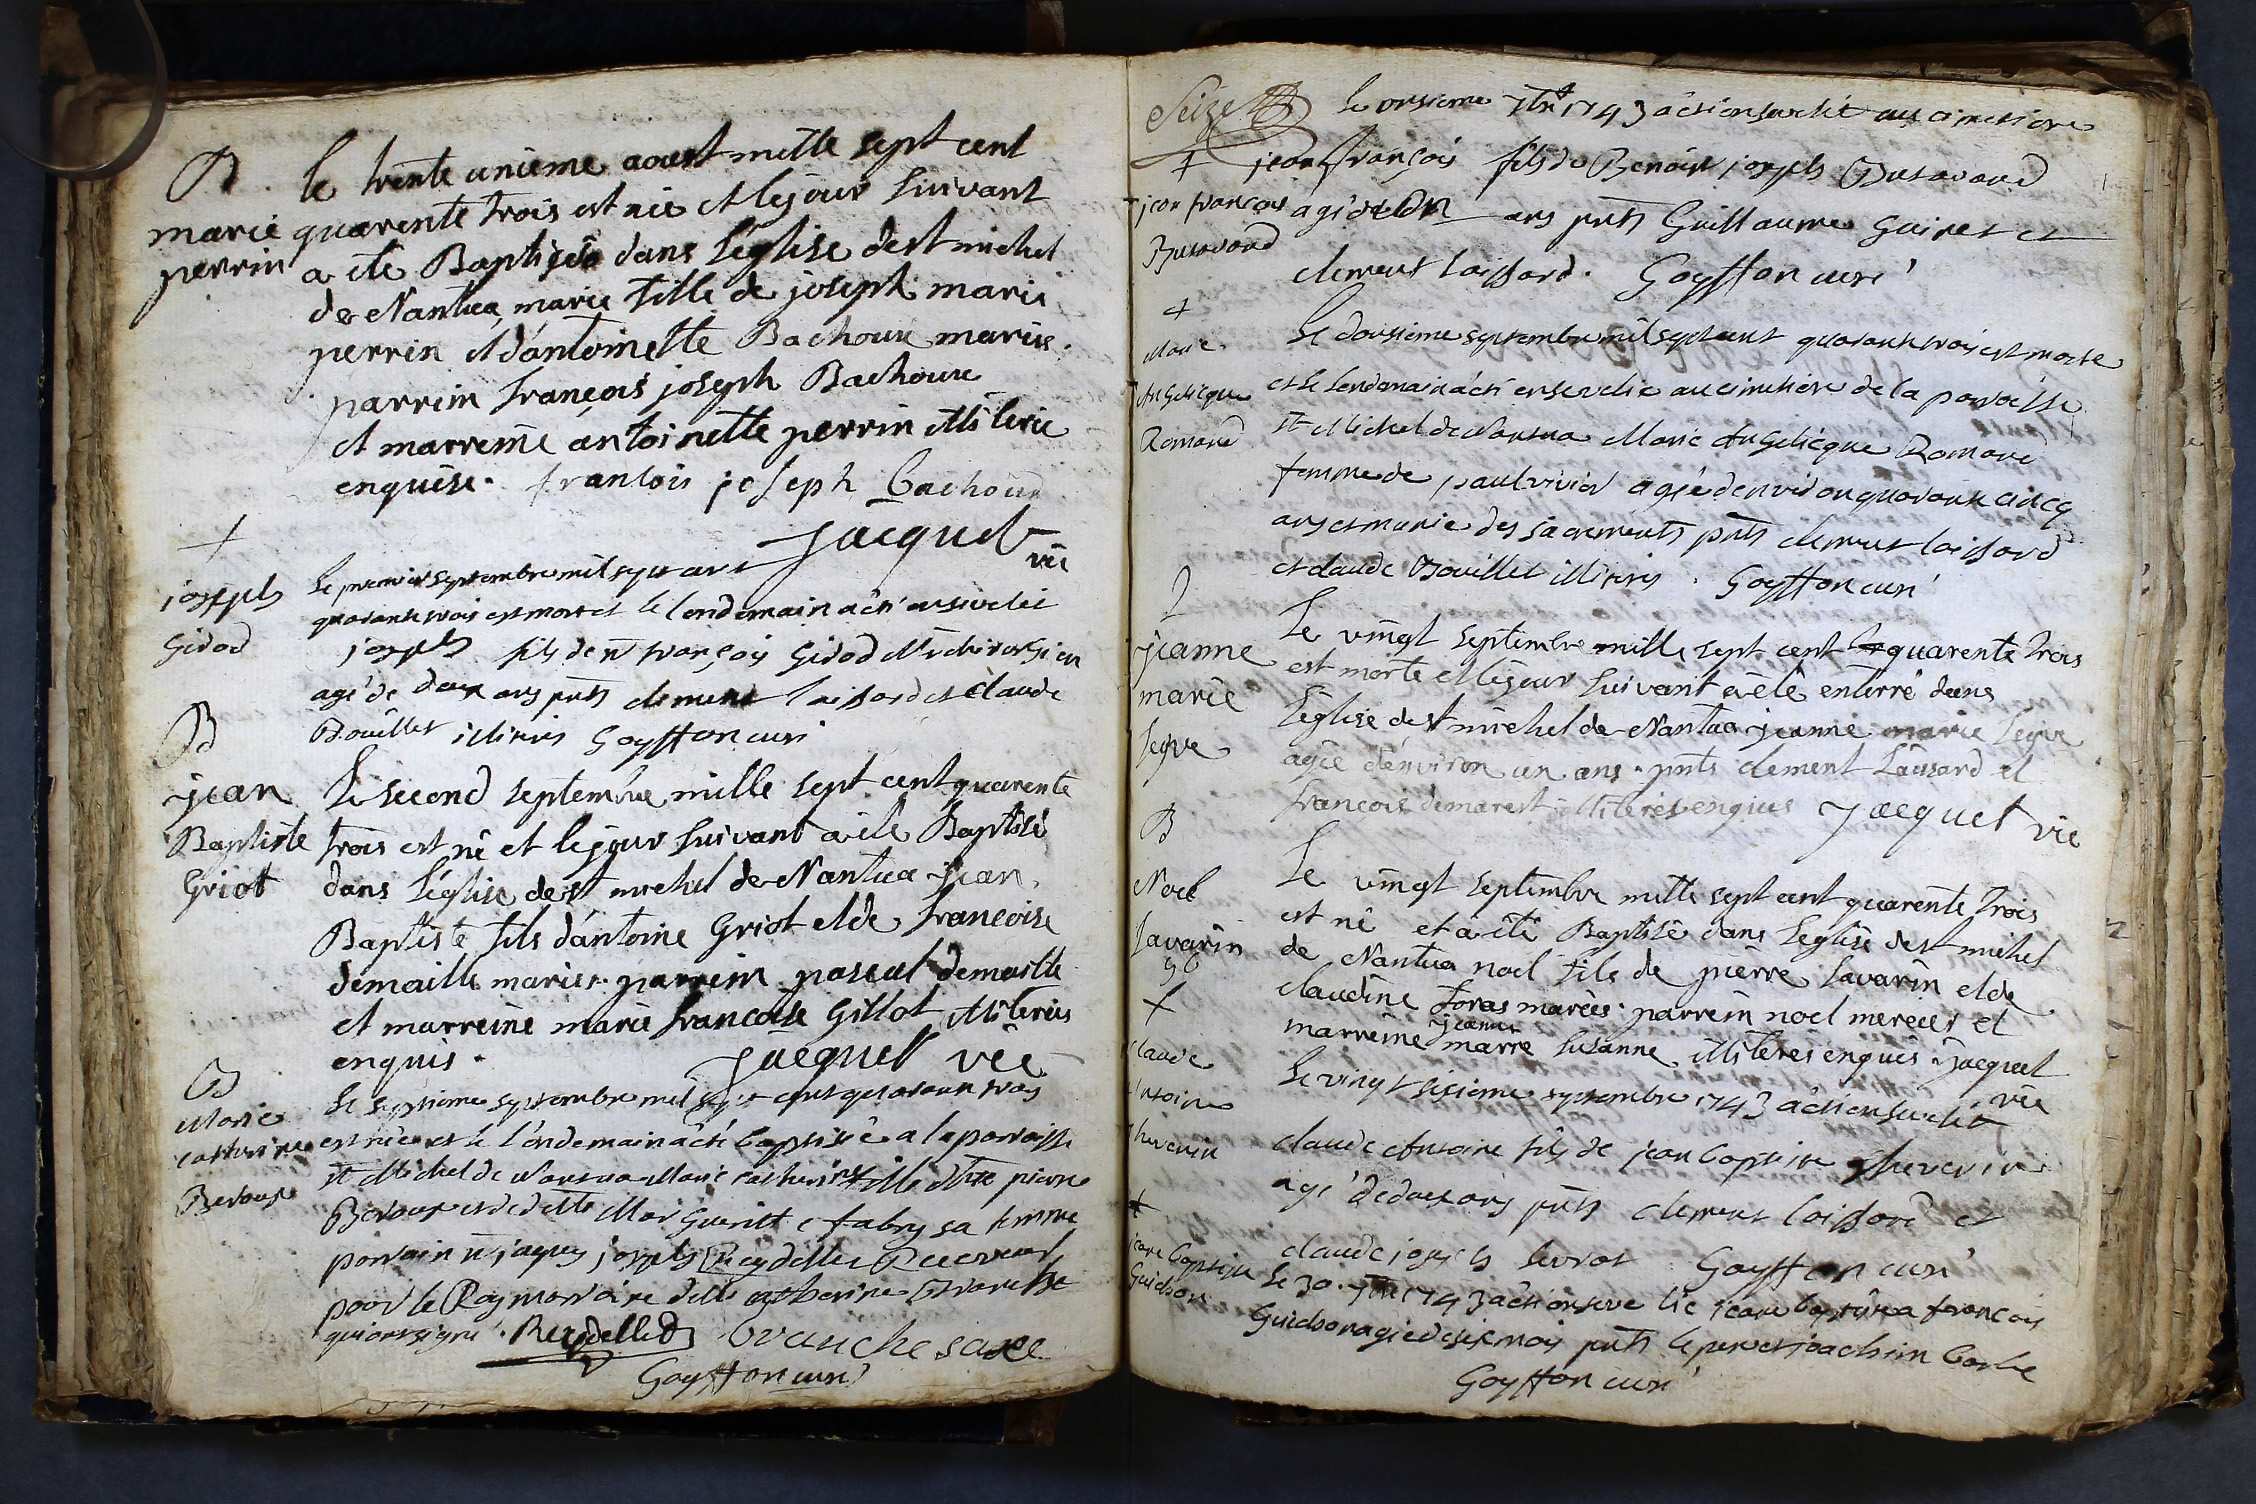 B
marie
perrin
le trente unieme aoust mille sept cent
quarente trois est née et le jour suivant
a été Baptisée dans l'église de st michel
de Nantua, marie fille de joseph marie
perrin et d'antoinette Bachoux mariés.
parrein françois joseph Bachoux
et marreine antoinette perrin illiterée
enquise. francois joseph bachoud
Jacquet
vic
+
joseph
Girod
Le premier septembre mil sept cent
quarante trois est mort et le lendemain a été ensevelit
joseph fils de françois Girod Me chirurgien
agé de deux ans puts clement laissard et claude
Bouillet illitirés Goyffon curé
B
jean
Baptiste
Griot
Le second septembre mille sept cent quarente
trois est né et le jour suivant a été Baptisé
dans l'église de st michel de Nantua jean
Baptiste fils d'antoine Griot et de francoise
demaille mariés. parrein pascal demaille
et marreine marie francoise Gillot illiterés
enquis. Jacquet vic
B
Marie
catherine
Le septieme septembre mil sept cent quarante trois
est née et le l'endemain a été baptisée a la paroisse
st Michel de Nantua Marie catherine fille de pierre
et de dlle Marguerite fabry sa femme
parrain jaques joseph Reydellet Receveur
pour le Roy marraine dlle catherine
qui ont signé. Reydellet
Goyffon curé
Seize
Le onsieme 7bre 1743 a été ensevelit au cimetiere
+
jean françois
jean françois fils de Benoist joseph
agé de ans puts Guillaume et
clement laissard. Goyffon curé
+
Marie
Angelicque
Romand
Le dousieme septembre mil sept cent quarante trois est morte
et le lendemain a été ensevelie au cimetiere de la paroisse
st Michel de Nantua Marie Angelicque Romand
femme de paul vivier agée d'environ quarante cincq
ans et munie des sacrements puts clement laissard
et claude Bouillet illitirés. Goyffon curé
jeanne
marie
Le vingt septembre mille sept cent quarente trois
est morte et le jour suivant a été enterré dans
l'église de st michel de Nantua jeanne marie
agée d'environ un ans. puts clement Laissard et
francois demarest illiterés enquis Jacquet vic
B
Noel
Savarin
Le vingt septembre mille sept cent quarente trois
est né et a été Baptisé dans l'église de st michel
de Nantua noel fils de pierre Savarin et de
claudine foras mariés. parrein noel mercier et
marreine jeanne marie susanne illiterés enquis. Jacquet
vic
+
claude
Antoine
thevenin
Le vingt sixieme septembre 1743 a été ensevelit
claude Antoine fils de jean baptiste thevenin
agé de deux ans puts clement laissard et
claude joseph Goyffon curé
+
jean baptiste
Guichon
Le 30. 7bre 1743 a été enseveli jean baptiste françois
Guichon agé de six mois puts le pere et joachim
Goyffon curé